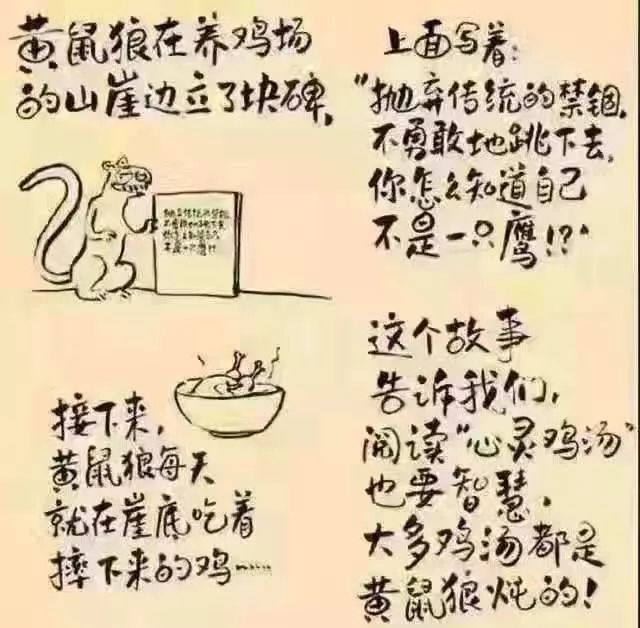 黄鼠狼在养鸡场
的山崖边立了块碑,
上面写着:
"抛弃传统的禁锢,
不勇敢地跳下去,
你怎么知道自己
不是一只鹰!?"
接下来,
黄鼠狼每天
就在崖底吃着
摔下来的鸡……
这个故事
告诉我们,
阅读"心灵鸡汤"
也要智慧,
大多鸡汤都是
黄鼠狼炖的!